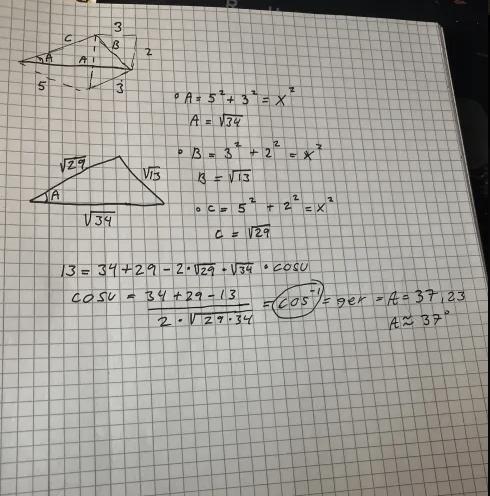 3
C
B
2
A
A
5
3
• A = 5² + 3² = x²
A = √34
• B = 3² + 2² = x²
B = √13
• C = 5² + 2² = x²
C = √29
√29
√13
A
√34
13 = 34 + 29 - 2 · √29 · √34 · cosu
cosu = 34 + 29 - 13 / 2 · √29 · 34 = cos⁻¹ = ger = A = 37,23
A ≈ 37°